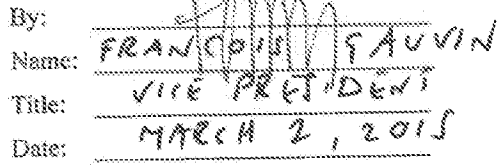 By:
Name: FRANCOIS GAUVIN
Title: VICE PRESIDENT
Date: MARCH 2, 2015